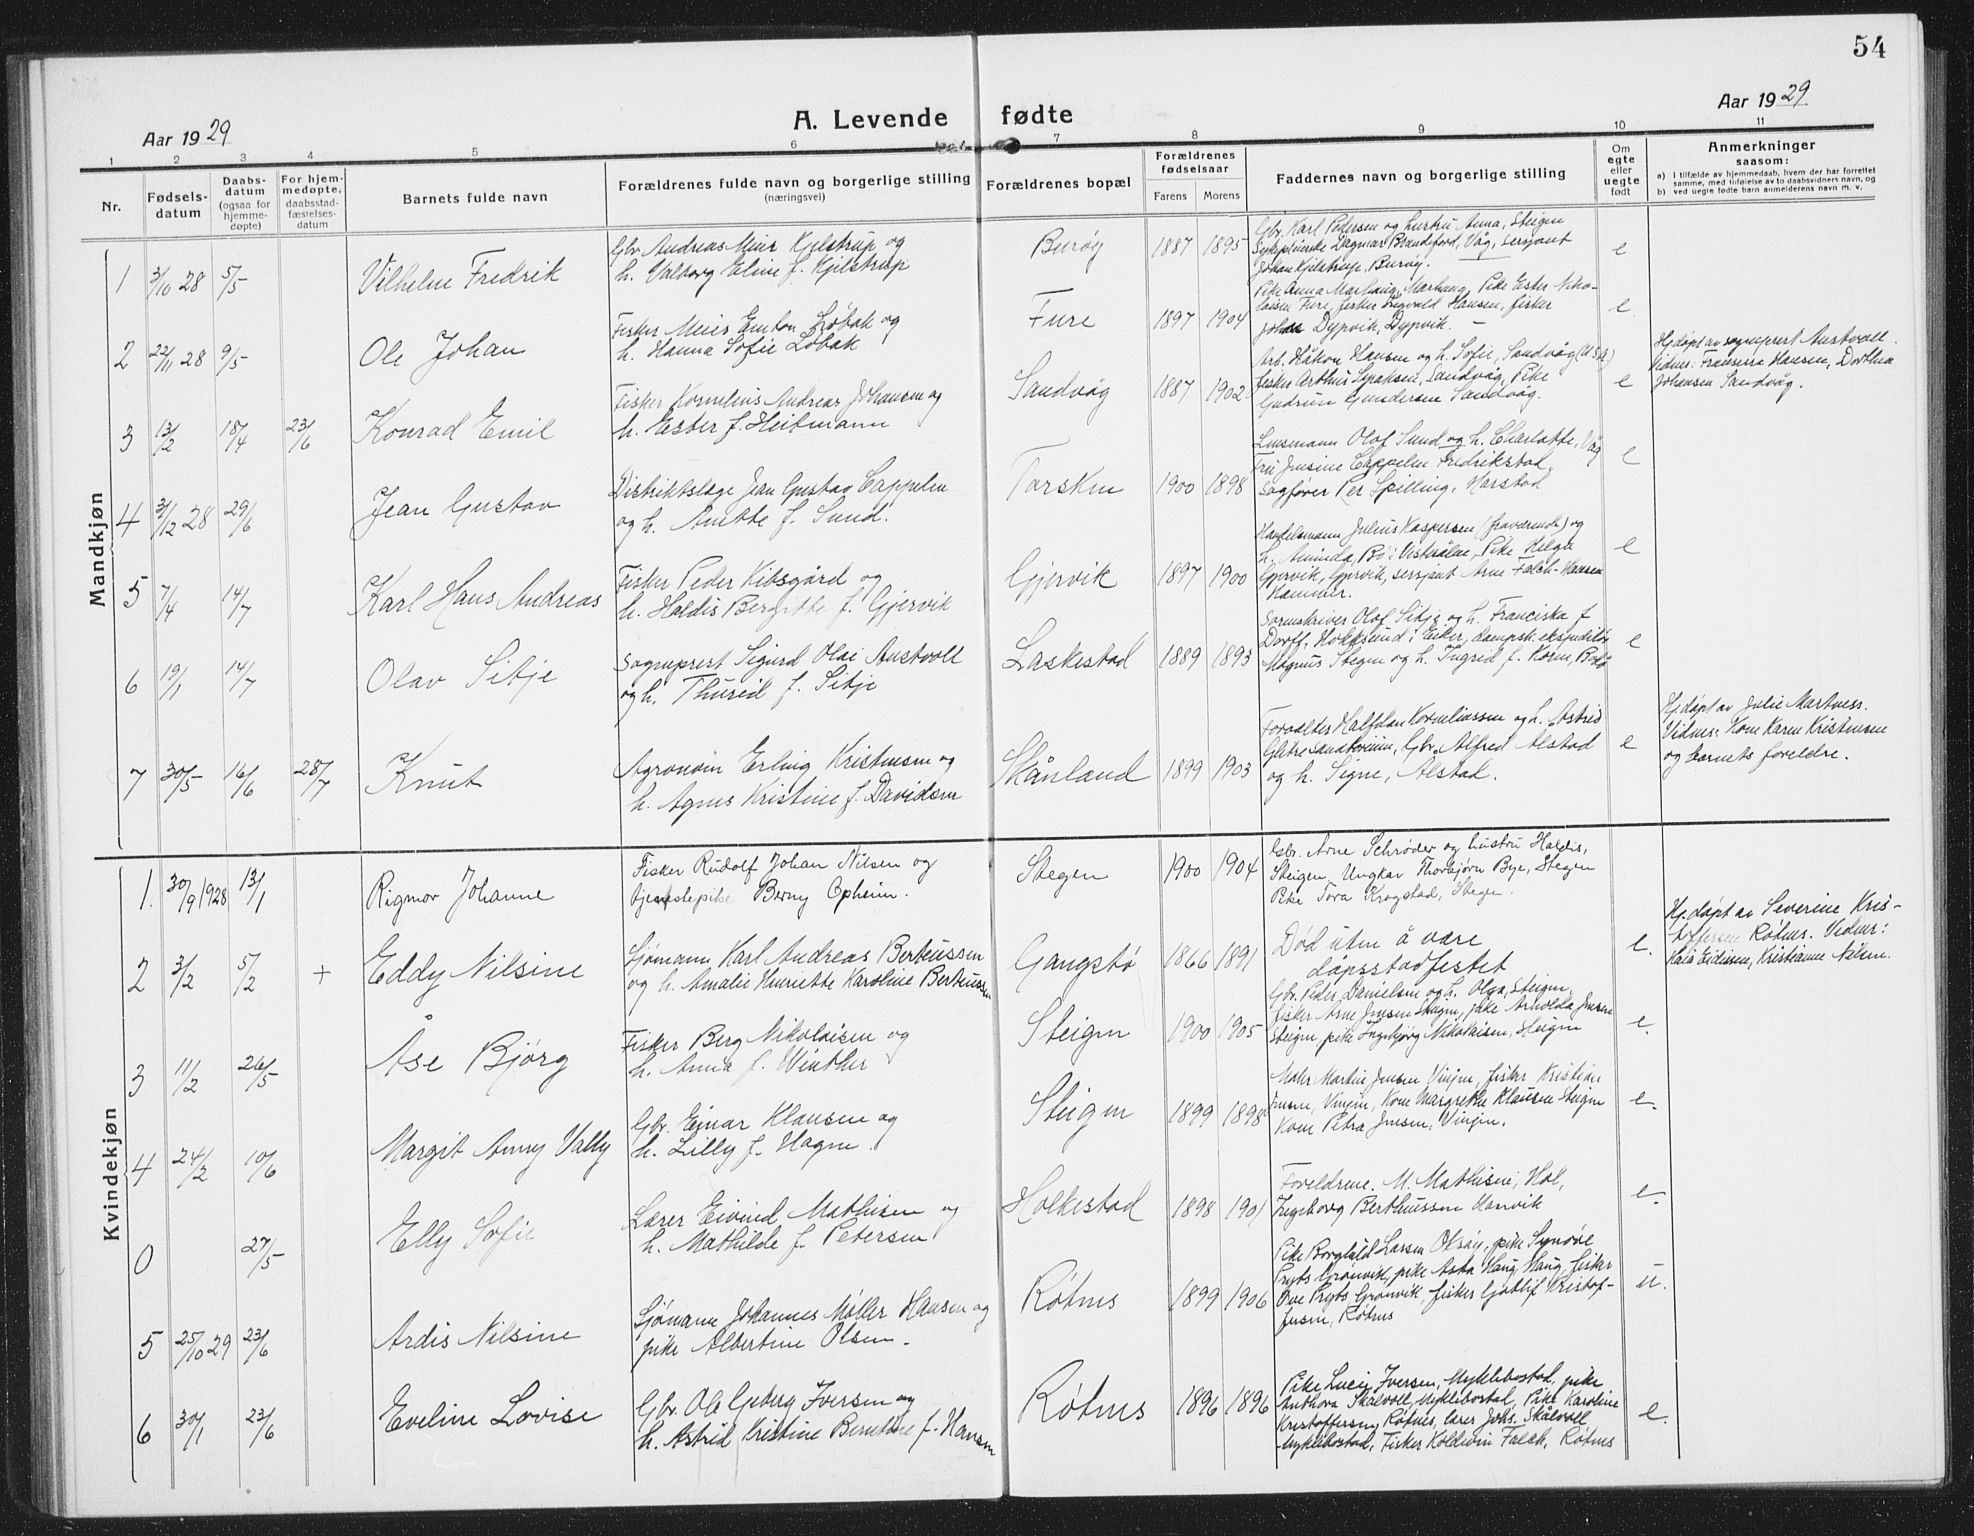 54
Aar 1929
A. Levende fødte
Aar 1929
1 2 3 4 5 6 7 8 9 10 11
Nr.
Fødsels-
datum
Daabs-
datum
(ogsaa for
hjemme-
døpte)
For hjem-
medøpte,
daabsstad-
fæstelses-
datum
Barnets fulde navn
Forældrenes fulde navn og borgerlige stilling
(næringsvei)
Forældrenes bopæl
Forældrenes
fødselsaar
Farens Morens
Faddernes navn og borgerlige stilling
Om
egte
eller
uegte
født
Anmerkninger
saasom:
a) I tilfælde av hjemmedaab, hvem der har forrettet
samme, med tilføielse av to daabsvidners navn, og
b) ved uegte fødte barn anmelderens navn m. v.
Mandkjøn
1 3/10 28 5/5 Vilhelm Fredrik
Gbr. Andreas Meier Kjelstrup og
h. Valborg Eline f. Kjelstrup
Burøy 1887 1895
Gbr. Karl Pedersen og hustru Anna, Steigen
Dagmar Våg, sersjant
Johan Kjelstrup, Burøy.
e
2 22/11 28 9/5 Ole Johan
Fisker Meier Løbak og
h. Hanna Sofie Løbak
Fure 1897 1904
Pike Anna Marhaug, Marhaug, Pike Ester Niko-
laisen Fure, fisker Hansen, fisker
Johan Dypvik, Dypvik.
e.
3 13/2 18/4 23/6 Konrad Emil
Fisker Kornelius Andreas Johansen og
h. Ester f. Heitmann
Sandvåg 1887 1902
Arb. Håkon Hansen og h. Sofie, Sandvåg (U.S.A.)
fisker Arthur Sandvåg, Pike
Gudrun Gundersen Sandvåg.
e
Hj.døpt av sogneprest Austvoll.
Vidner: Hansen, Dorthea
Johansen Sandvåg.
4 31/12 28 29/6 Jean Gustav
Distriktslæge Jean Gustav Cappelen
og h. Anette f. Sund.
Torsken 1900 1898
Lensmann Olaf Sund og h. Charlotte, Våg
Fru Cappelen Fredrikstad,
Sagfører Per Spilling, Harstad
e
5 7/4 14/7 Karl Hans Andreas
Fisker Peder Kibsgård og
h. Haldis Bergitte f. Gjervik
Gjervik 1897 1900
Handelsmann Julius Kaspersen (fraværende) og
h. Bø i Vesterålen, Pike Helga
Gjervik, Gjervik, sersjant Arne Falch-Hansen
Hammer.
e
6 19/1 14/7 Olav Sitje
Sogneprest Sigurd Olai Austvoll
og h. Thurid f. Sitje
Laskestad 1889 1893
Sorenskriver Olaf Sitje og h. Franciska f.
Dorff, Hokksund i Eiker,
Magnus Stegen og h. Ingrid f. Korm, Bodø
e
7 30/5 16/6 28/7 Knut
Agronom Erling Kristensen og
h. Agnes Kristine f. Davidsen
Skånland 1899 1903
Forvalter Halfdan Korneliussen og h. Astrid
Gbr. Alfred Alstad
og h. Signe, Alstad.
e
Hj.døpt av Julie Martness.
Vidner: Kone Karen Kristensen
og barnets foreldre.
Kvindekjøn
1. 30/9 1928 13/1 Rigmor Johanne
Fisker Rudolf Johan Nilsen og
tjenestepike Berny Opheim.
Stegen 1900 1904
Gbr. Arne Schrøder og hustru Haldis,
Steigen, Ungkar Thorbjørn Bye, Stegen
Pike Tora Krogstad, Stegen.
2 3/2 5/2 + Eddy Nilsine
Sjømann Karl Andreas Berteussen
og h. Amalie Henriette Karoline Berteussen
Gangstø 1866 1891
Død uten å være
dåpsstadfestet
e.
Hj.døpt av Severine Kris-
toffersen Røtnes. Vidner:
Eidissen, Kristianne Nilsen.
3 11/2 26/5 Åse Bjørg
Fisker Berg Nikolaisen og
h. Anna f. Winther
Steigen 1900 1905
Gbr. Peder Danielsen og h. Olga, Steigen,
fisker Arne Jensen Steigen, pike Arnolda Jensen
Steigen, pike Ingebjørg Nikolaisen, Steigen
e.
4 24/2 10/6 Margit Anny Vally
Gbr. Einar Klausen og
h. Lilly f. Hagen.
Steigen 1899 1898
Maler Martin Jensen Vinjen, fisker Kristian
Jensen, Vinjen, Kone Margrethe Klausen Steigen
Kone Petra Jensen, Vinjen.
e.
0 27/5 Elly Sofie
Lærer Eivind Mathisen og
h. Mathilde f. Petersen
Holkestad 1898 1901
Foreldrene. M. Mathisen, Hol,
Ingeborg Berthuussen Hanvik
e.
5 25/10 29 23/6 Ardis Nilsine
Sjømann Johannes Møller Hansen og
pike Albertine Olsen.
Røtnes 1899 1906
Pike Borghild Larsen Oksøy, pike Synnøve
Prytz Grønvik, pike Asta Haug, Haug, fisker
Ove Prytz Grønvik, fisker Gotlif Kristof-
fersen, Røtnes
u.
6 30/1 23/6 Eveline Lovise
Gbr. Ole Iversen og
h. Astrid Kristine Berntine f. Hansen
Røtnes 1896 1896
Pike Lucie Iversen, Myklebostad, pike
Anthora Skålvoll, Myklebostad, Pike Karoline
Kristoffersen, Røtnes, lærer Johs. Skålvoll
Myklebostad, Fisker Koldevin Falch, Røtnes
e.